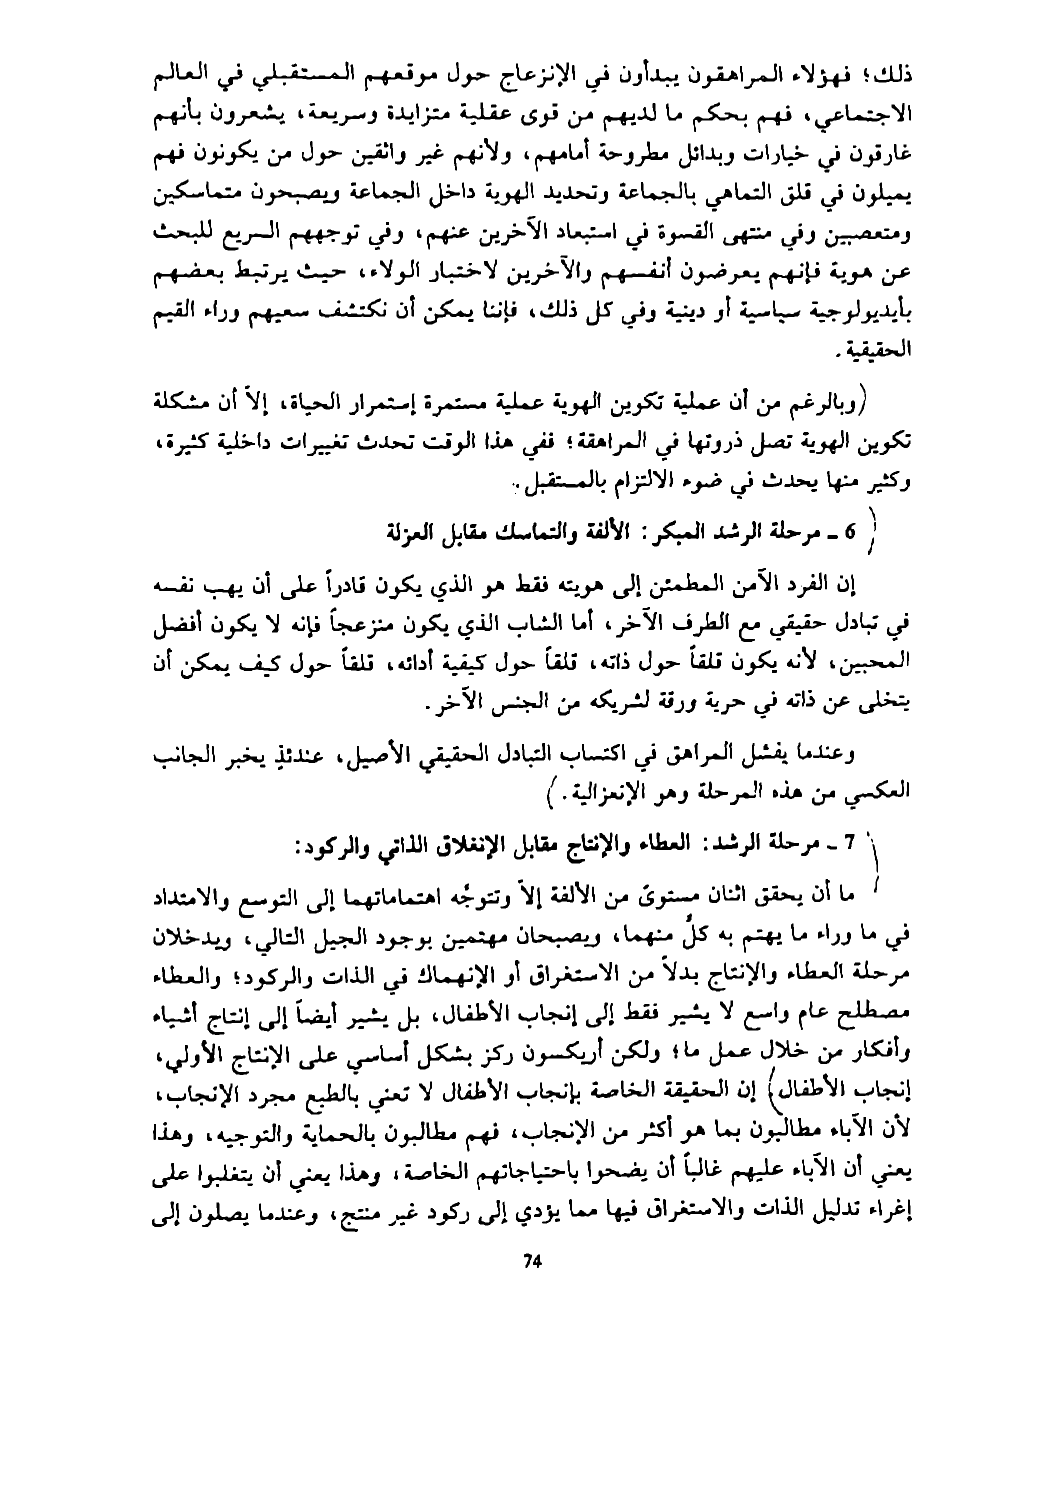 ذلك؛ فهؤلاء المراهقون يبدأون في الإنزعاج حول موقعهم المستقبلي في العالم
الاجتماعي، فهم بحكم ما لديهم من قوى عقلية متزايدة وسريعة، يشعرون بأنهم
غارقون في خيارات وبدائل مطروحة أمامهم، ولأنهم غير واثقين حول من يكونون فهم
يميلون في قلق التماهي بالجماعة وتحديد الهوية داخل الجماعة ويصبحون متماسكين
ومتعصبين وفي منتهى القسوة في استبعاد الآخرين عنهم، وفي توجههم السريع للبحث
عن هوية فإنهم يعرضون أنفسهم والآخرين لاختبار الولاء، حيث يرتبط بعضهم
بأيديولوجية سياسية أو دينية وفي كل ذلك، فإننا يمكن أن نكتشف سعيهم وراء القيم
الحقيقية.
(وبالرغم من أن عملية تكوين الهوية عملية مستمرة إستمرار الحياة، إلاّ أن مشكلة
تكوين الهوية تصل ذروتها في المراهقة؛ ففي هذا الوقت تحدث تغييرات داخلية كثيرة،
وكثير منها يحدث في ضوء الالتزام بالمستقبل.
6 ـ مرحلة الرشد المبكر: الألفة والتماسك مقابل العزلة
إن الفرد الآمن المطمئن إلى هويته فقط هو الذي يكون قادراً على أن يهب نفسه
في تبادل حقيقي مع الطرف الآخر، أما الشاب الذي يكون منزعجاً فإنه لا يكون أفضل
المحبين، لأنه يكون قلقاً حول ذاته، قلقاً حول كيفية أدائه، قلقاً حول كيف يمكن أن
يتخلى عن ذاته في حرية ورقة لشريكه من الجنس الآخر.
وعندما يفشل المراهق في اكتساب التبادل الحقيقي الأصيل، عندئذٍ يخبر الجانب
العكسي من هذه المرحلة وهو الإنعزالية.)
7 ـ مرحلة الرشد: العطاء والإنتاج مقابل الإنغلاق الذاتي والركود:
ما أن يحقق اثنان مستوىً من الألفة إلاّ وتتوجَّه اهتماماتهما إلى التوسع والامتداد
في ما وراء ما يهتم به كلٌّ منهما، ويصبحان مهتمين بوجود الجيل التالي، ويدخلان
مرحلة العطاء والإنتاج بدلاً من الاستغراق أو الإنهماك في الذات والركود؛ والعطاء
مصطلح عام واسع لا يشير فقط إلى إنجاب الأطفال، بل يشير أيضاً إلى إنتاج أشياء
وأفكار من خلال عمل ما؛ ولكن أريكسون ركز بشكل أساسي على الإنتاج الأولي،
إنجاب الأطفال) إن الحقيقة الخاصة بإنجاب الأطفال لا تعني بالطبع مجرد الإنجاب،
لأن الآباء مطالبون بما هو أكثر من الإنجاب، فهم مطالبون بالحماية والتوجيه، وهذا
يعني أن الآباء عليهم غالباً أن يضحوا باحتياجاتهم الخاصة، وهذا يعني أن يتغلبوا على
إغراء تدليل الذات والاستغراق فيها مما يؤدي إلى ركود غير منتج، وعندما يصلون إلى
74